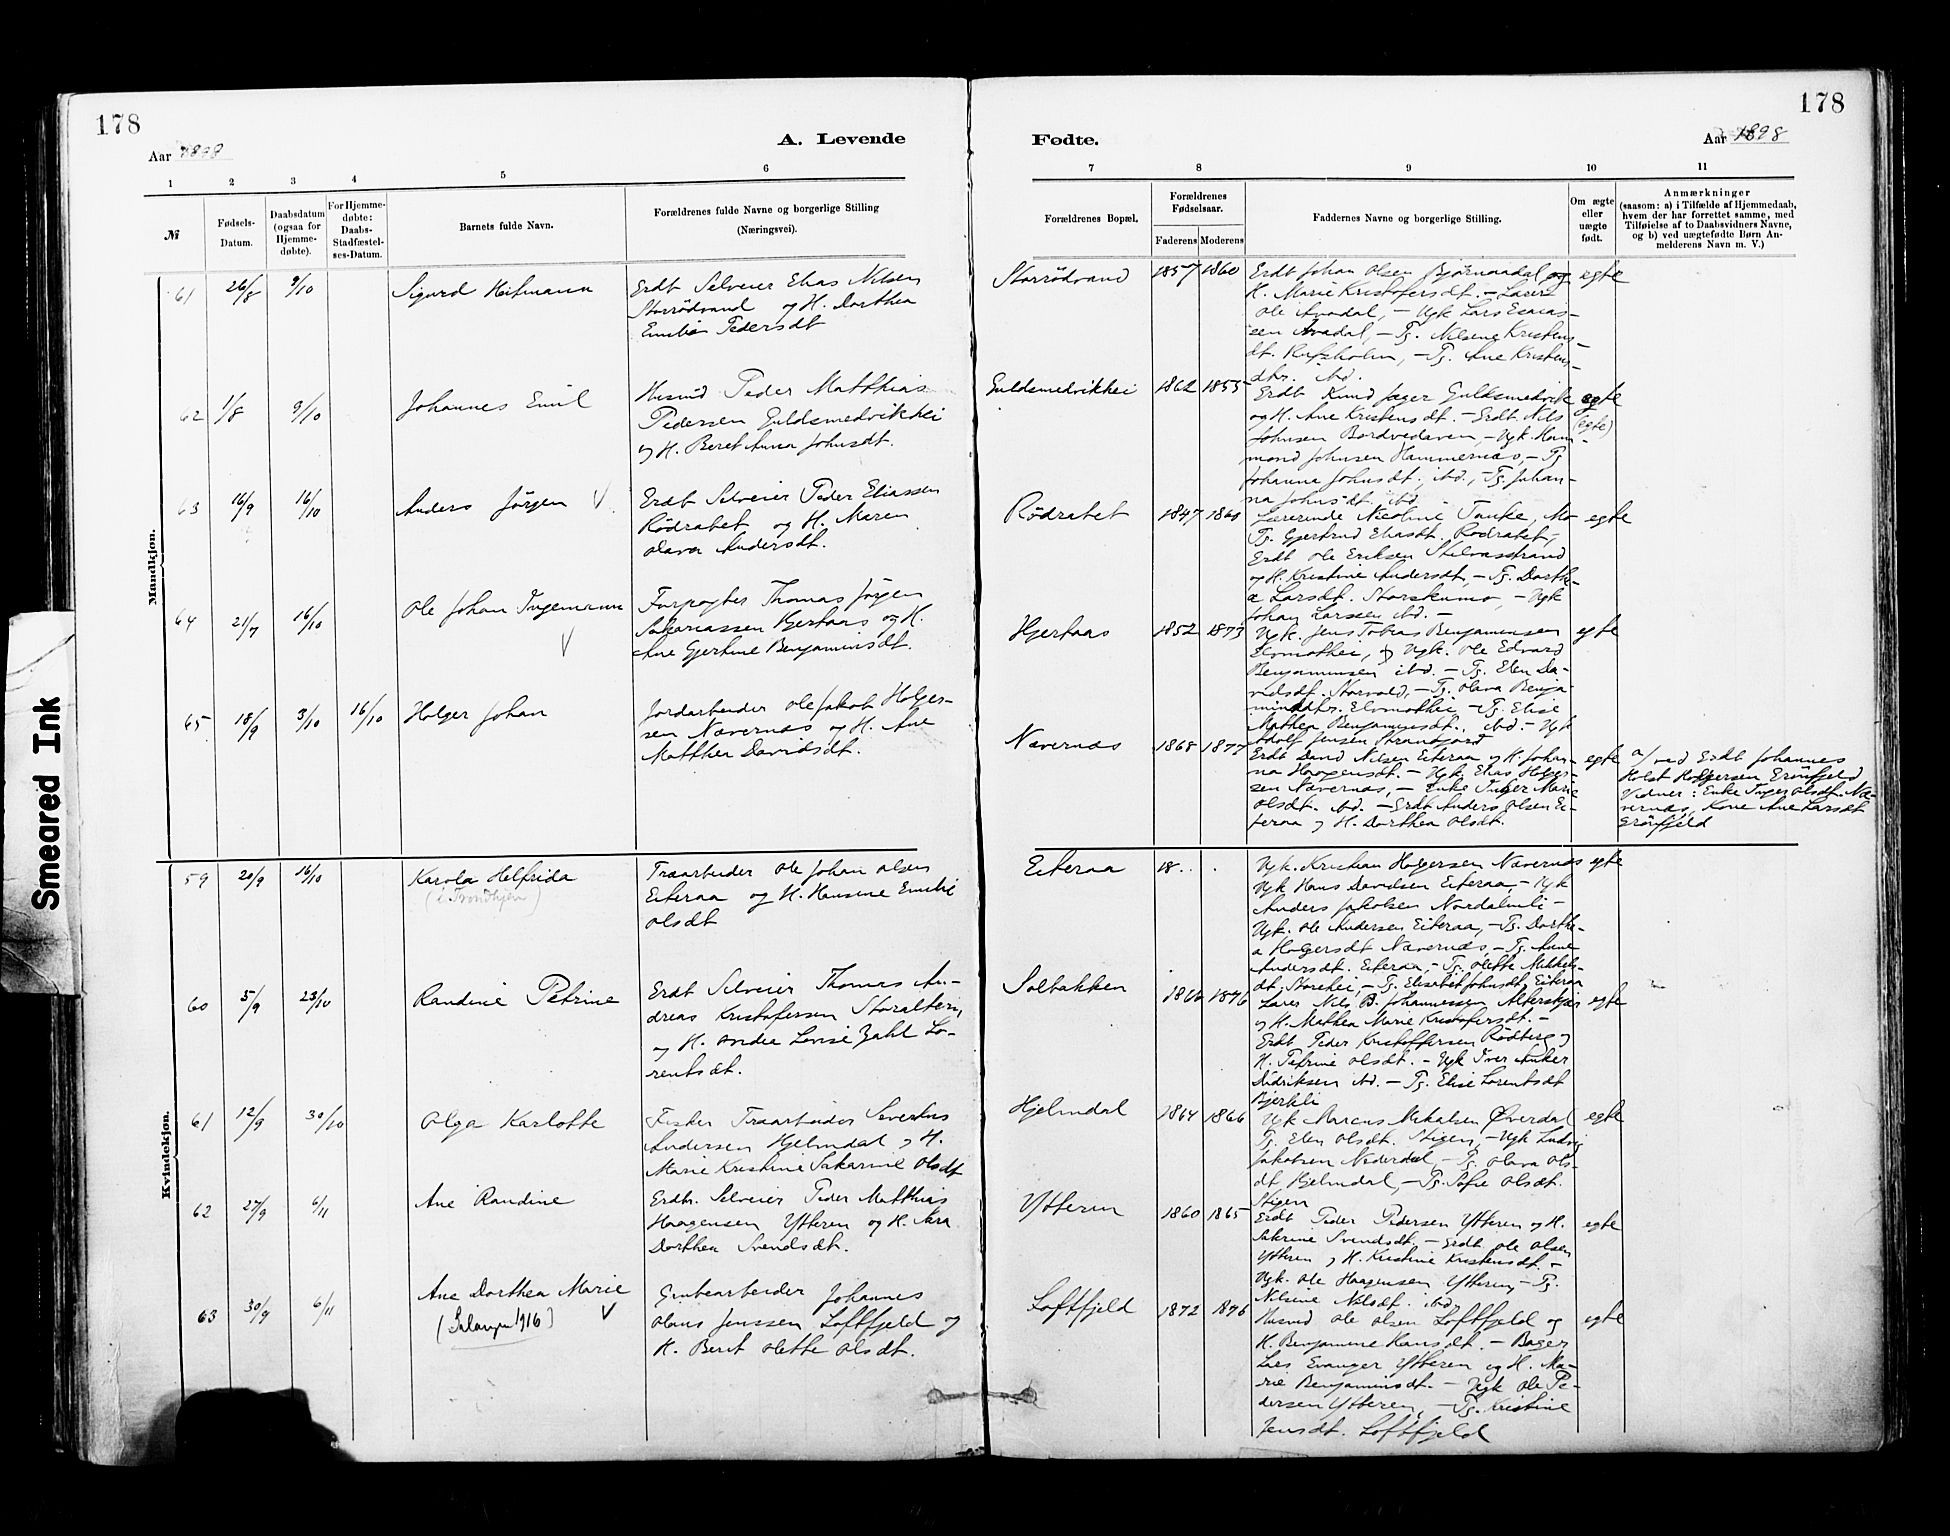 178
178
A. Levende
Fødte.
Aar 1898
Aar 1898
1
2
3
4
5
6
7
8
9
10
11
№
Fødsels-
Datum.
Daabsdatum
(ogsaa for
Hjemme-
døbte).
For Hjemme-
døbte:
Daabs-
Stadfæstel-
ses-Datum.
Barnets fulde Navn.
Forældrenes fulde Navne og borgerlige Stilling
(Næringsvei).
Forældrenes Bopæl.
Forældrenes
Fødselsaar.
Faderens
Moderens
Faddernes Navne og borgerlige Stilling.
Om ægte
eller
uægte
født.
Anmærkninger
(saasom: a) i Tilfælde af Hjemmedaab,
hvem der har forrettet samme, med
Tilføielse af to Daabsvidners Navne,
og b) ved uægtefødte Børn An-
melderens Navn m. V.)
Mandkjøn.
61 26/8 9/10
Sigurd Heitmann
Erdt Selveier Elias Nilsen
Storrödvand og H. Dorthea
Emilie Pedersdt
Storrödvand
1857 1860
Erdt Johan Olsen Bjørnaadal og
H. Marie Kristofersdt. – Lærer
Ole Avadal, – Ugk Lars Esaias-
sen Avadal, – Pg. Nilsine Kristens-
dt. – Pg. Ane Kristens-
dtr. ibd.
egte
62 1/8 9/10
Johannes Emil
Husmd Peder Matthias
Pedersen Guldsmedvikhei
og H. Beret Anna Johnsdt.
Guldsmedvikhei
1862 1855
Erdt Knud Jæger Guldsmedvik
og H. Ane Kristensdt. – Erdt Nils
Johnsen Bordvedaven, – Ugk. Ham-
mond Johnsen Hammernæs, – Pg
Johanna Johnsdt., ibd., – Pg. Johan-
na Johnsdt. ibd.
egte
(egte)
63 16/9 16/10
Anders Jørgen V
Erdt Selveier Peder Eliassen
Rödrabet og H. Maren
Olava Andersdt.
Rödrabet
1847 1860
Lærerinde Nicoline Tanke, Mo
Pg. Gjertrud Eliasdt. Rödrabet,
Erdt Ole Eriksen Stilvasstrand
og H. Kristine Andersdt, – Pg. Dorthe-
a Larsdt. Storskumo, – Ugk
Johan Larssen ibd. –
egte
64 21/7 16/10
Ole Johan Ingemann
V
Forpagter Thomas Jörgen
Sakariassen Hjertaas og H.
Ane Gjertine Benjaminsdt.
Hjertaas
1852 1873
Ugk. Jens Tobias Benjaminsen
Elvmothei, og Ugk. Ole Edvard
Benjaminsen ibd. – Pg. Elen Da-
vidsdt. Storvold, – Pg. Olava Benja-
minsdtr. Elvmothei – Pg. Elise
Mathea Benjaminsdt. ibd. – Ugk
Adolf Jensen Strandjord
egte
65 18/9 3/10 16/10
Holger Johan
Jordarbeider Ole Jakob Holger-
sen Nævernæs og H. Ane
Matthea Davidsdt.
Nævernæs
1868 1877
Erdt David Nilsen Eiteraa og H. Johan-
na Haagensdt. – Ugk. Elias Holger-
sen Nævernæs, – Enke Inger Marie
Olsdt. ibd. – Erdt Anders Olsen Ei-
teraa og H. Dorthea Olsdt.
egte
a/ ved Erdt Johannes
Holst Holgersen Grönfjeld
Vidner: Enke Inger Olsdt. Næ-
vernæs, Kone Ane Larsdt
Grönfjeld
Kvindekjøn.
59 20/9 16/10
Karola Helfrida
(i Trondhjem)
Træarbeider Ole Johan Olsen
Eiteraa og H. Hansine Emilie
Olsdt
Eiteraa
18.. .
Ugk. Kristian Holgersen Nævernæs
Ugk Hans Davidsen Eiteraa, – Ugk
Anders Jakobsen Nordalsnli –
Ugk. Ole Andersen Eiteraa, – Pg. Dorthe-
a Holgersdt Nævernæs, – Pg. Anne
Andersdt. Eiteraa, – Pg. Olette Mikkels-
dt. Storehei, – Pg. Elisabet Johnsdt, Eiteraa
egte
60 5/9 23/10
Randine Petrine
Erdt Selveier Thomas An-
dreas Kristofersen Storalteren,
og H. Andrea Lovise Zahl Lo-
rentsdt.
Solbakken
1866 1876
Lærer Nils B. Johannessen Alterskjær
og H. Mathea Marie Kristofersdt. –
Erdt Peder Kristoffersen Rödberg og
H. Petrine Olsdt. – Ugk Iver Anker
Didriksen ibd. – Pg. Elise Lorentsdt
Bjerkli
egte
61 12/9 30/10
Olga Karlotte
Fisker Træarbeider Severins
Andersen Hjelmdal og H.
Marie Kristine Sakarine Olsdt
Hjelmdal
1864 1866
Ugk Marcus Mikalsen Øverdal
Pg. Elen Olsdt. Stigen, – Ugk Ludvig
Jakobsen Nederdal – Pg. Olava Ols-
dt Hjelmdal, – Pg. Sofie Olsdt.
Stigen
egte
62 27/9 6/11
Ane Randine
Erdtr. Selveier Peder Matthias
Haagensen Ytteren og H. Sara
Dorthea Svendsdt.
Ytteren
1860 1865
Erdt Peder Pedersen Ytteren og H.
Sakrine Svendsdt. – Erdt. Ole Olsen
Ytteren og H. Kristine Kristensdt. –
Ugk. Ole Haagensen Ytteren, – Pg.
Nilsine Nilsdt. ibd.
egte
63 30/9 6/11
Ane Dorthea Marie
(Salangen 1916) V
Grubearbeider Johannes
Olaus Jenssen Loftfjeld og
H. Beret Olette Olsdt.
Loftfjeld
1872 1876
Husmd Ole Olsen Loftfjeld og
H. Benjamine Hansdt. – Bager
Lars Evanger Ytteren og H. Ma-
rie Benjaminsdt. – Ugk Ole Pe-
dersen Ytteren, – Pg. Kristine
Jensdt. Loftfjeld
egte
Smeared Ink